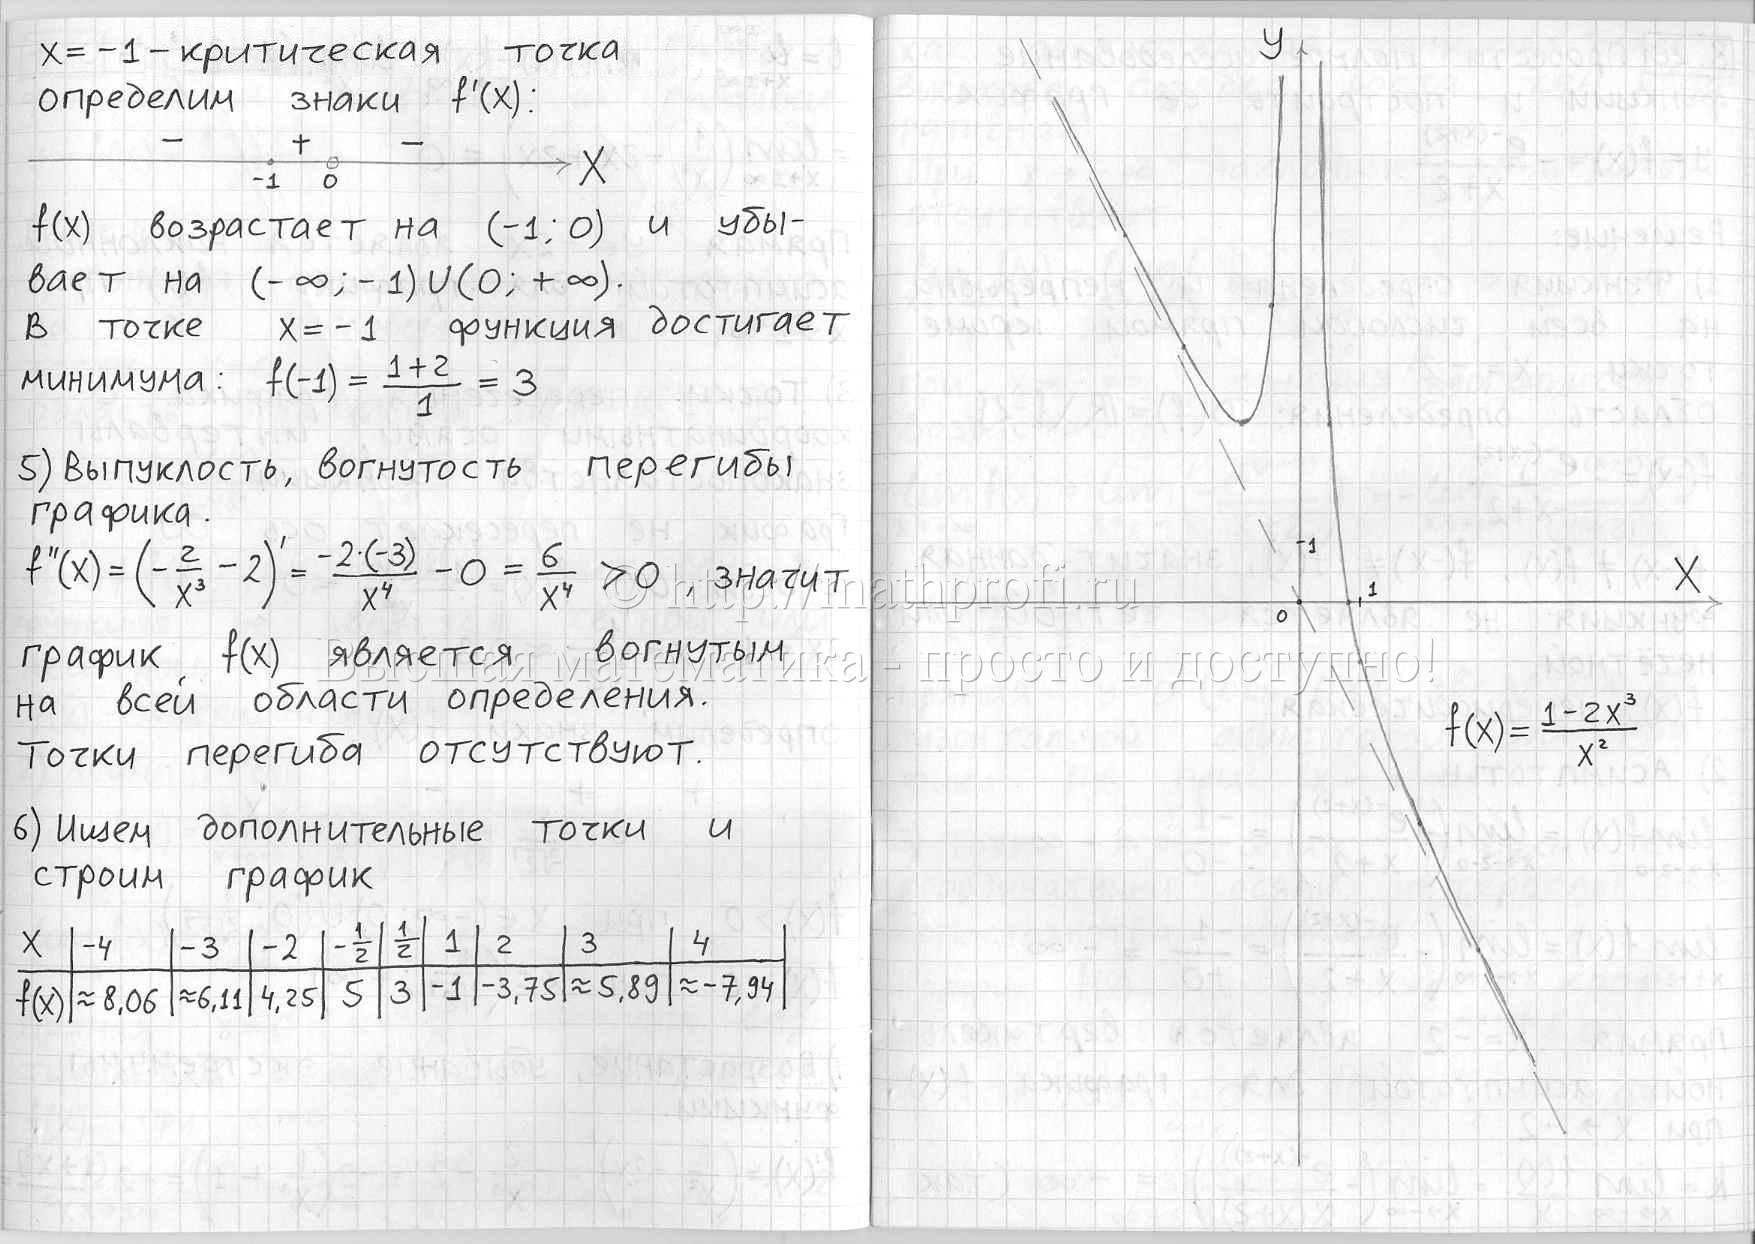 x = -1 - критическая точка
определим знаки f'(x):
- + -
-1 0 X
f(x) возрастает на (-1; 0) и убы-
вает на (-∞; -1) U (0; +∞).
В точке x = -1 функция достигает
минимума: f(-1) = (1+2)/1 = 3
5) Выпуклость, вогнутость перегибы
графика.
f''(x) = (-2/x³ - 2)' = -2·(-3)/x⁴ - 0 = 6/x⁴ > 0, значит
график f(x) является вогнутым
на всей области определения.
Точки перегиба отсутствуют.
6) Ищем дополнительные точки и
строим график
X | -4 | -3 | -2 | -1/2 | 1/2 | 1 | 2 | 3 | 4
f(x) | ≈8,06 | ≈6,11 | 4,25 | 5 | 3 | -1 | -3,75 | ≈5,89 | ≈-7,94
y
1
X
1
0
f(x) = (1-2x³)/x²
© http://mathprofi.ru
Высшая математика - просто и доступно!